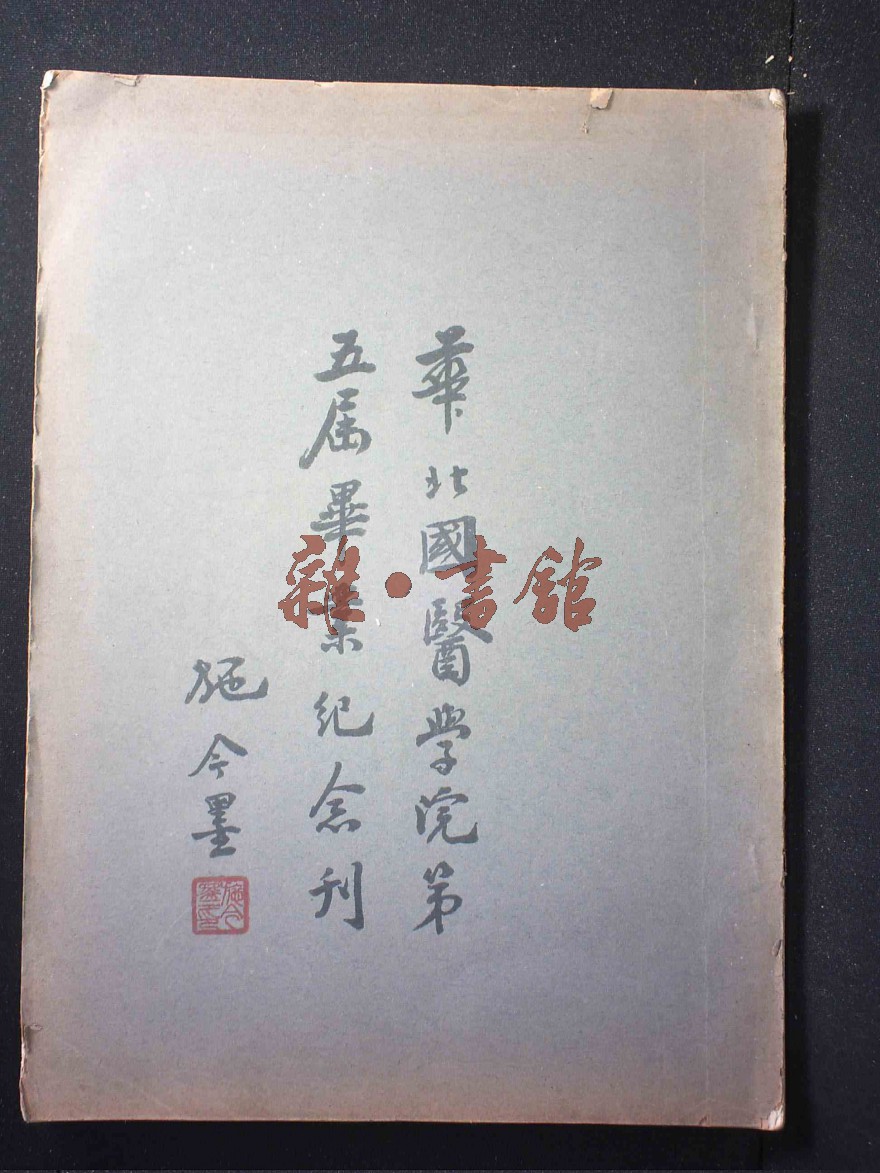 華北國醫學院第
五届畢業紀念刊
施今墨
雜·書舘